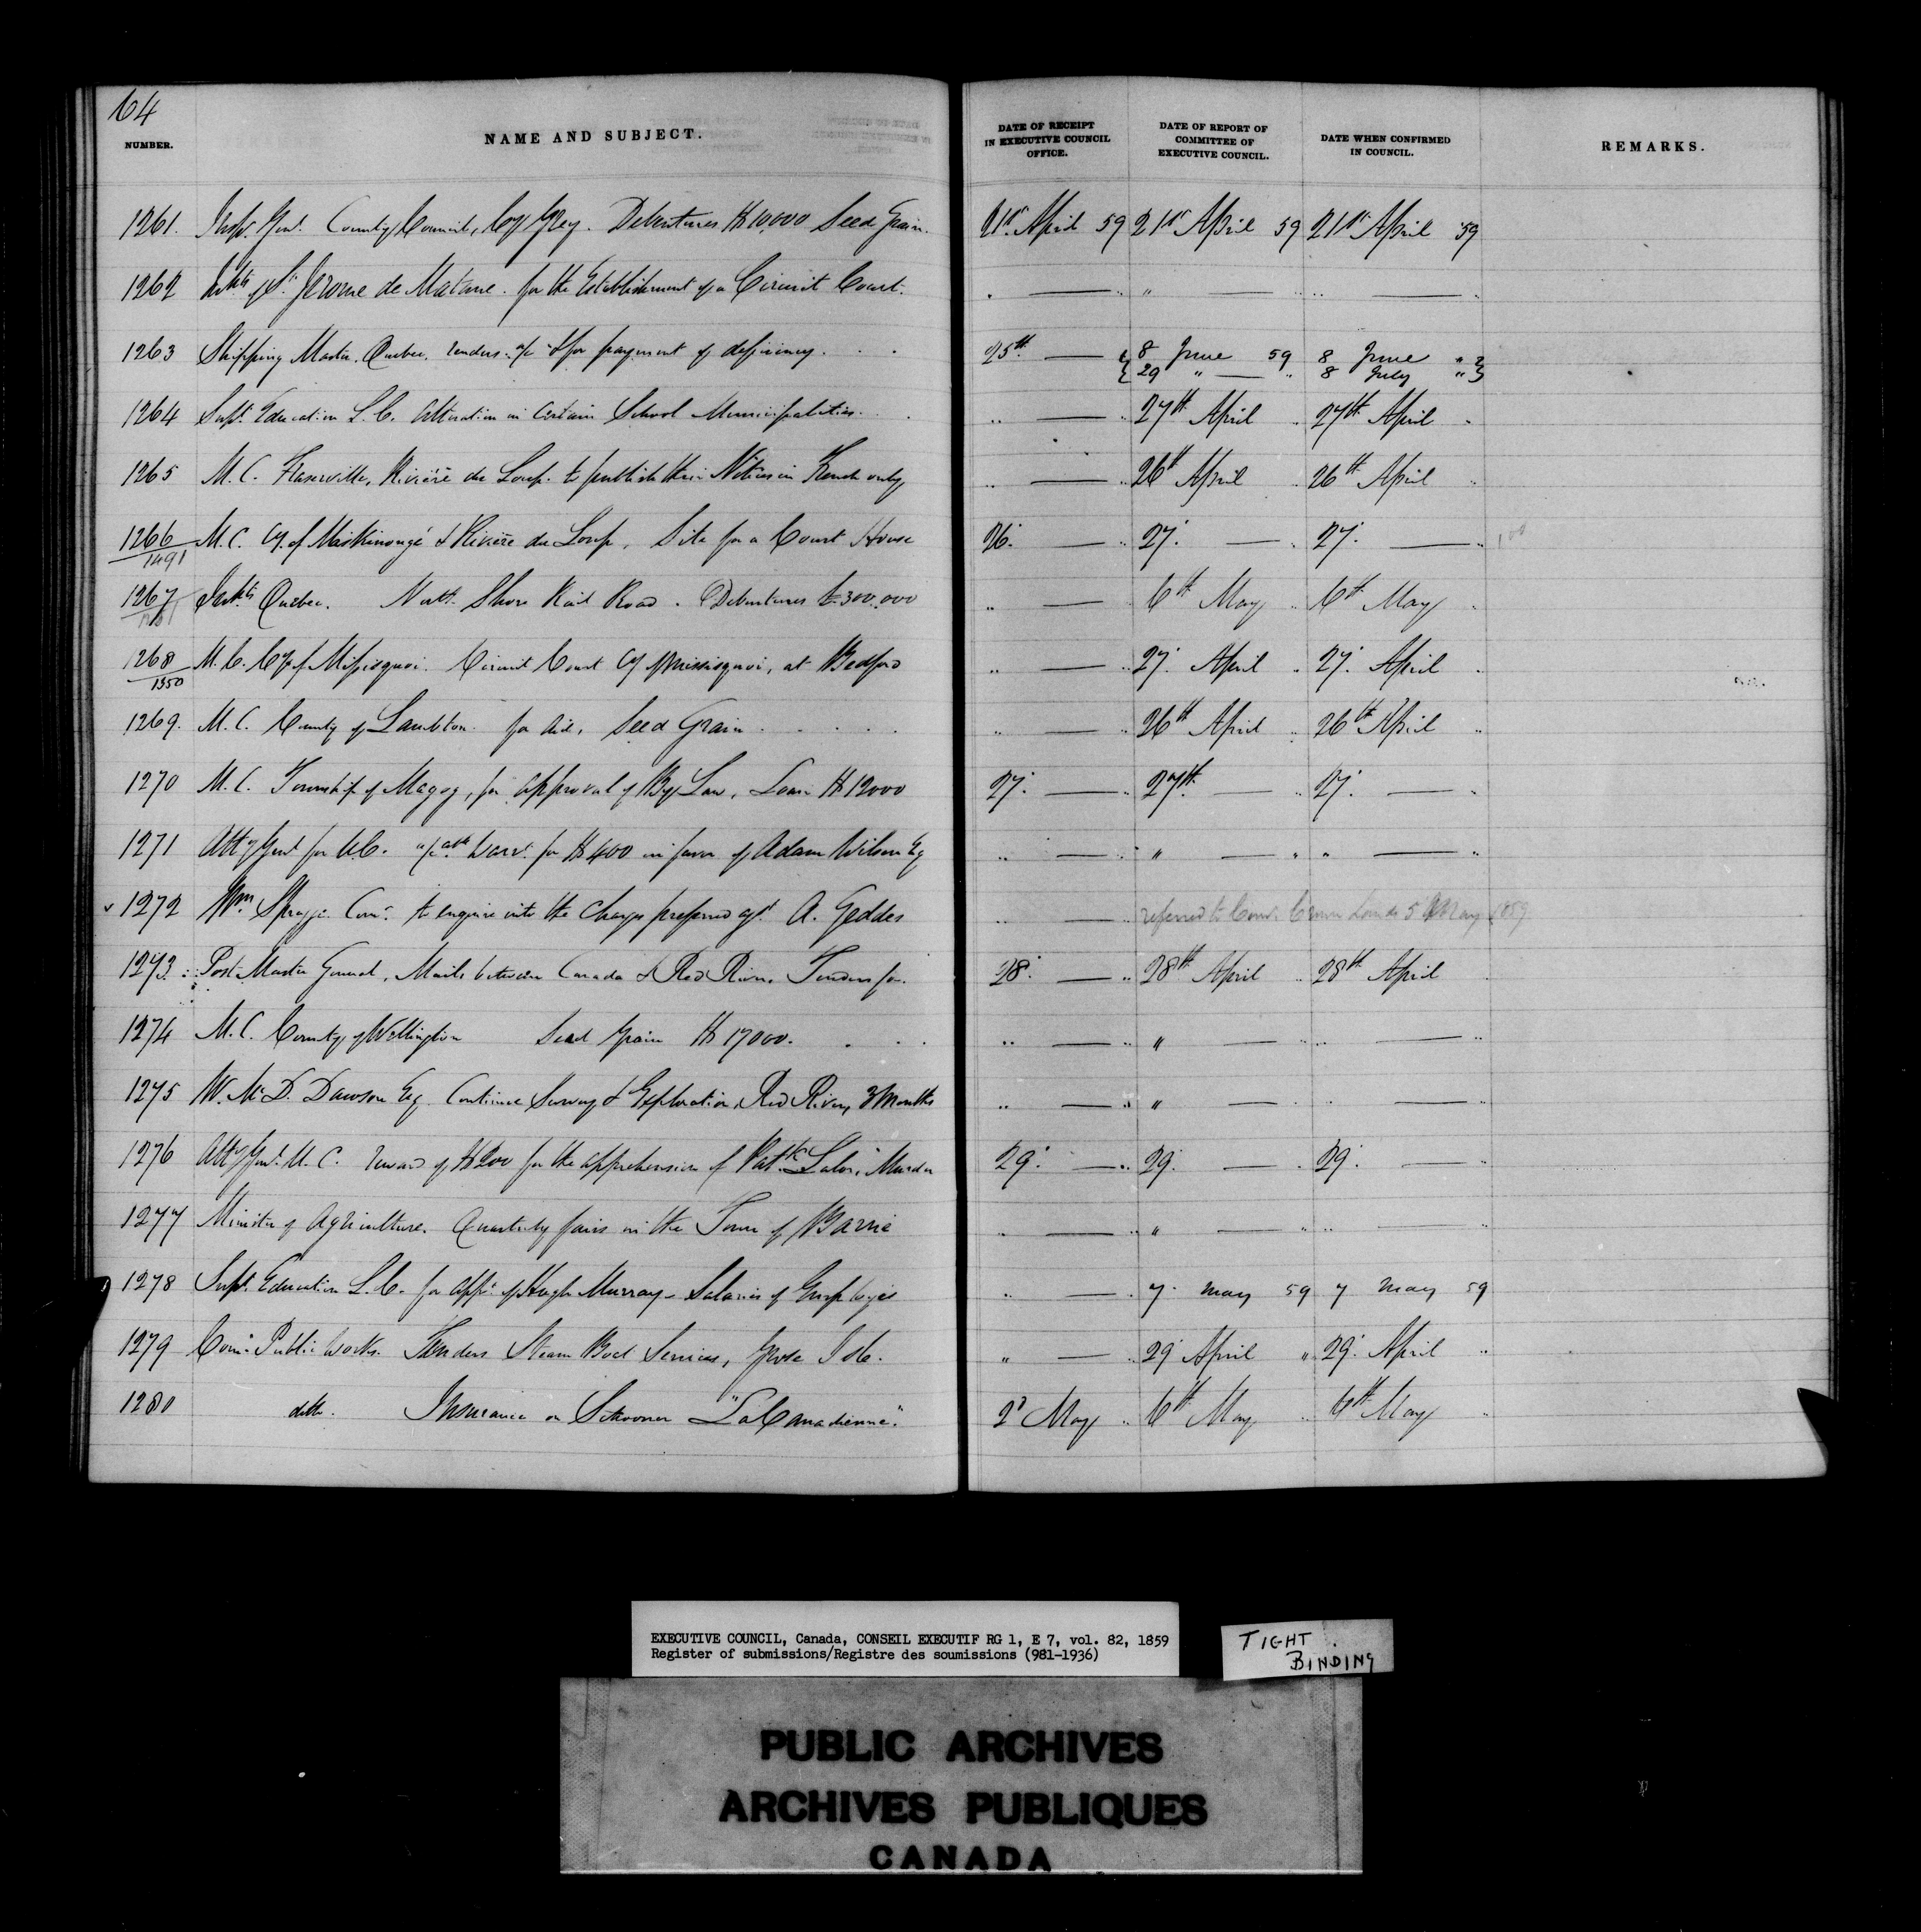 64
NUMBER. NAME AND SUBJECT. DATE OF RECEIPT IN EXECUTIVE COUNCIL OFFICE. DATE OF REPORT OF COMMITTEE OF EXECUTIVE COUNCIL. DATE WHEN CONFIRMED IN COUNCIL. REMARKS.
1261. Insp. Genl. County Council, Cy Grey. Debentures $10,000 Seed Grain. 21st April 59 21st April 59 21st April 59
1262 Inhbts of St. Jerome de Matane. for the Establishment of a Circuit Court. " — " " — " " — "
1263 Shipping Master. Quebec. renders a/c & for payment of deficiency. 25th — " { 8 June 59 8 June " }
{ 29 " — " 8 July " }
1264 Supt. Education L.C. Alteration in certain School Municipalities. " — " 27th April " 27th April "
1265 M.C. Fraserville, Rivière du Loup. to publish their Notices in French only " — " 26th April " 26th April "
1266 M.C. Cy. of Maskinongé & Rivière du Loup, Site for a Court House 26. — " 27. — " 27. — "
1491
1267 Inhbts Quebec. North Shore Rail Road. Debentures £300,000 " — " 6th May " 6th May "
1268 M.C. Cy of Missisquoi. Circuit Court Cy Missisquoi, at Bedford " — " 27. April " 27. April "
1350
1269. M.C. County of Lambton for Aid, Seed Grain " — " 26th April " 26th April "
1270 M.C. Township of Magog, for approval of By Law, Loan $12000 27. — " 27th. — " 27. — "
1271 Atty Genl for U.C. a/c Warrt. for $400 in favor of Adam Wilson Esq " — " " — " " — "
1272 Wm Spragge Comr. to enquire into the Charges preferred agt A. Geddes " — " referred to Comr. Crown Lands 5 May 1859
1273. Post Master General, Mails between Canada & Red River Tenders for. 28. — " 28th April " 28th April
1274 M.C. County of Wellington Seed Grain $17000. " — " " — " " — "
1275 W. McD. Dawson Esq. Continue Survey & Exploration, Red River, 3 Months " — " " — " " — "
1276 Atty Genl. U.C. reward of $200 for the apprehension of Patk. Lalor, Murder 29. — " 29. — " 29. —
1277 Minister of Agriculture. Quarterly fairs in the Town of Barrie " — " " — " " "
1278 Supt. Education L.C. for appt. of Hugh Murray - Salaries of Employés " — " 7. May 59 7 May 59
1279 Comr. Public Works. Tenders Steam Boat Services, Grosse Isle. " — " 29 April " 29. April "
1280 ditto. Insurance on Schooner "La Canadienne". 2d May " 6th May " 6th May "
EXECUTIVE COUNCIL, Canada, CONSEIL EXECUTIF RG 1, E 7, vol. 82, 1859
Register of submissions/Registre des soumissions (981-1936)
TIGHT
BINDING
PUBLIC ARCHIVES
ARCHIVES PUBLIQUES
CANADA